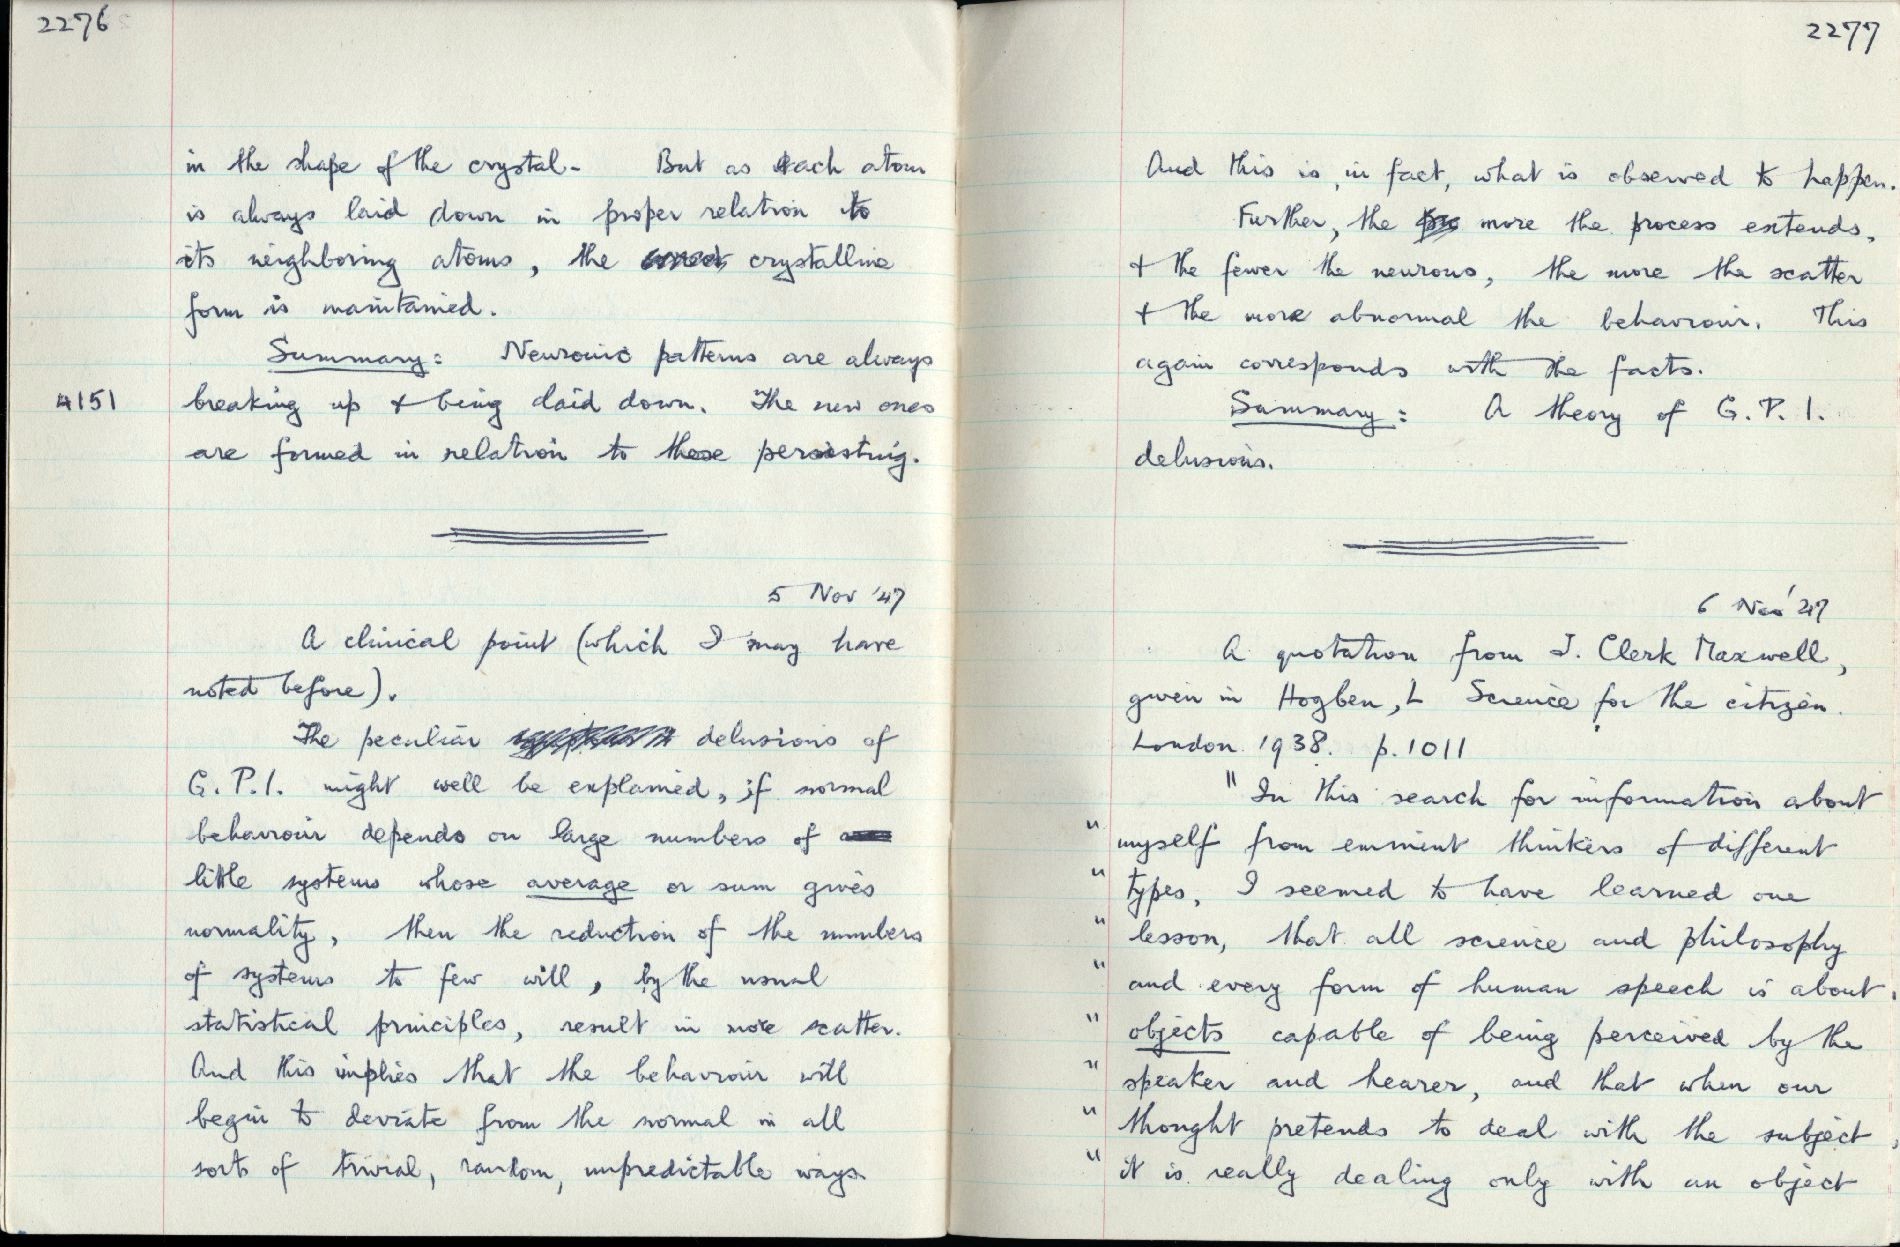 2276
in the shape of the crystal. But as each atom
is always laid down in proper relation to
its neighboring atoms, the crystalline
form is maintained.
Summary: Neuronic patterns are always
4151 breaking up & being laid down. The new ones
are formed in relation to those persisting.
5 Nov '47
A clinical point (which I may have
noted before).
The peculiar delusions of
G.P.I. might well be explained, if normal
behaviour depends on large numbers of
little systems whose average or sum gives
normality, then the reduction of the numbers
of systems to few will, by the usual
statistical principles, result in more scatter.
And this implies that the behaviour will
begin to deviate from the normal in all
sorts of trivial, random, unpredictable ways.
2277
And this is, in fact, what is observed to happen.
Further, the more the process extends,
& the fewer the neurons, the more the scatter
& the more abnormal the behaviour. This
again corresponds with the facts.
Summary: A theory of G.P.I.
delusions.
6 Nov '47
A quotation from J. Clerk Maxwell,
given in Hogben, L Science for the citizen.
London. 1938. p. 1011
"In this search for information about
" myself from eminent thinkers of different
" types, I seemed to have learned one
" lesson, that all science and philosophy
" and every form of human speech is about
" objects capable of being perceived by the
" speaker and hearer, and that when our
" thought pretends to deal with the subject,
" it is really dealing only with an object